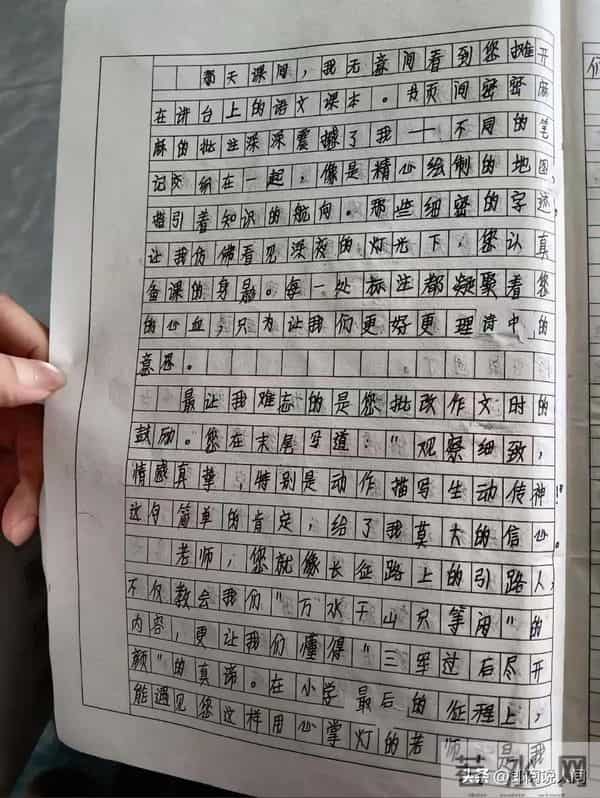 那天课间，我无意间看到您摊开
在讲台上的语文课本。书页间密密麻
麻的批注深深震撼了我——不同的笔
记交织在一起，像是精心绘制的地图，
指引着知识的航向。那些细密的字迹，
让我仿佛看见深夜的灯光下，您认真
备课的身影。每一处标注都凝聚着您
的心血，只为让我们更好更理清中的
意思。
最让我难忘的是您批改作文时的
鼓励。您在末尾写道："观察细致，
情感真挚，特别是动作描写生动传神！"
这句简单的肯定，给了我莫大的信心。
老师，您就像长征路上的引路人，
不仅教会我们"万水千山只等闲"的
内容，更让我们懂得"三军过后尽开
颜"的真谛。在小学最后的征程上，
能遇见您这样用心掌灯的老师，是我
们
头条